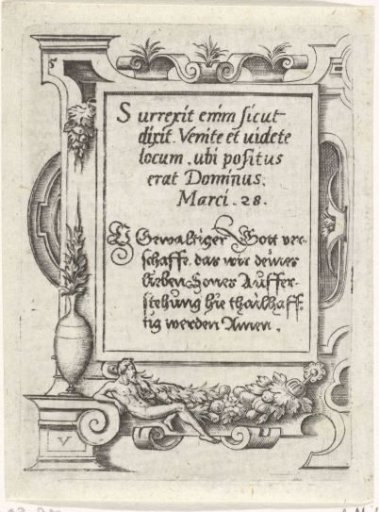 5
Surrexit enim sicut
dixit. Venite et uidete
locum, ubi positus
erat Dominus.
Marci. 28.
O Gewaltiger Gott ver⸗
schaffe, das wir deines
lieben Sones Auffer⸗
stehung hie thailhaff⸗
tig werden Amen.
V